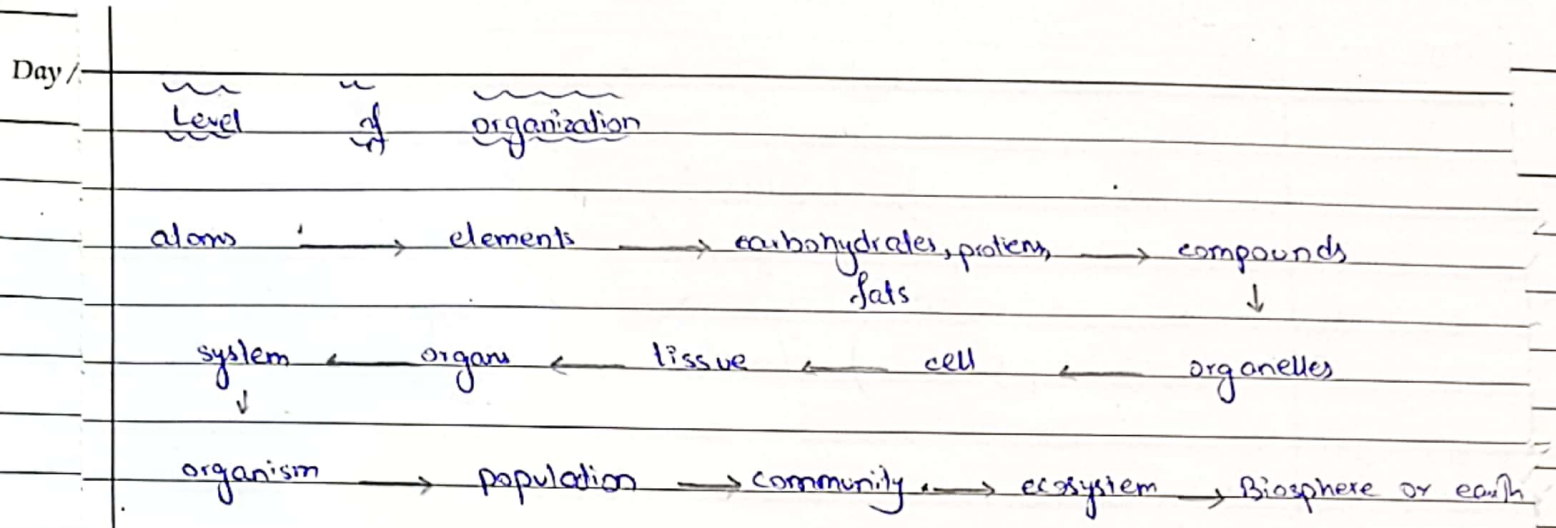 Day /
Level of organization
atoms → elements → carbohydrates, protiens, → compounds
fats
↓
system ← organs ← tissue ← cell ← organelles
↓
organism → population → community → ecosystem → Biosphere or earth